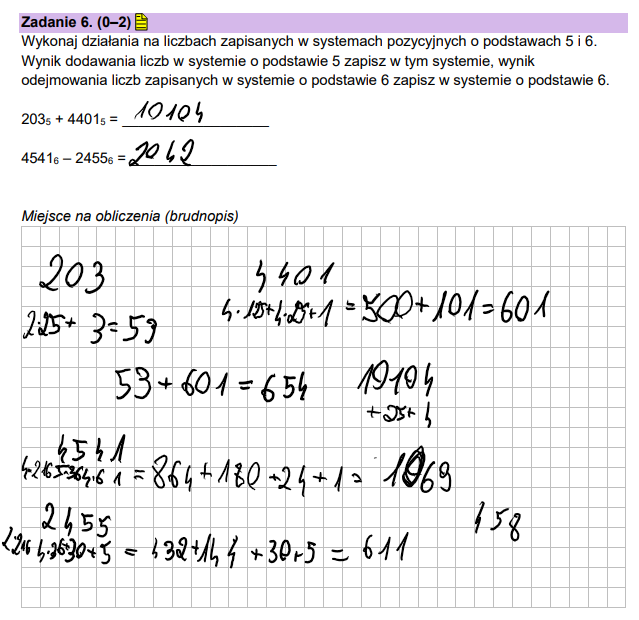 Zadanie 6. (0–2)
Wykonaj działania na liczbach zapisanych w systemach pozycyjnych o podstawach 5 i 6.
Wynik dodawania liczb w systemie o podstawie 5 zapisz w tym systemie, wynik
odejmowania liczb zapisanych w systemie o podstawie 6 zapisz w systemie o podstawie 6.
203₅ + 4401₅ = 10104
4541₆ – 2455₆ = 2042
Miejsce na obliczenia (brudnopis)
203 4401
2·25+ 3=53 4·125+4·25+1 = 500+101=601
53+601=654 10104
+25+4
4541
4·216 5·36 4·6 1 = 864+180+24+1= 1069
2455 458
2·216 4·36+30+5 = 432+144+30+5 = 611